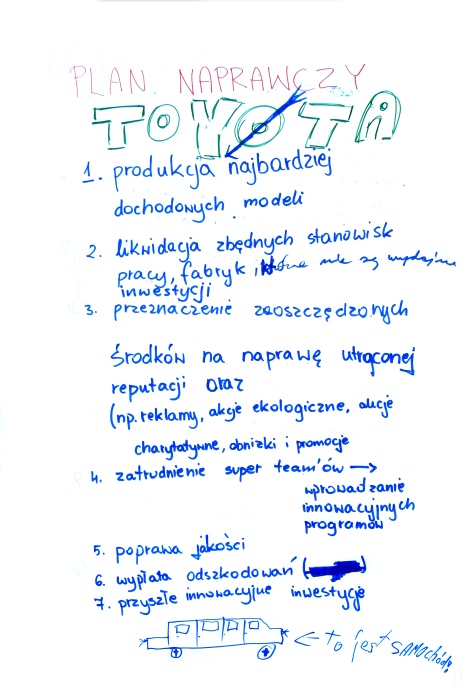 PLAN NAPRAWCZY
TOYOTA
1. produkcja najbardziej
dochodowych modeli
2. likwidacja zbędnych stanowisk
pracy, fabryk, które nie są wydajne
inwestycji
3. przeznaczenie zaoszczędzonych
środków na naprawę utraconej
reputacji oraz
(np. reklamy, akcje ekologiczne, akcje
charytatywne, obniżki i promocje
4. zatrudnienie super team'ów →
wprowadzanie
innowacyjnych
programów
5. poprawa jakości
6. wypłata odszkodowań (
)
7. przyszłe innowacyjne inwestycje
← to jest SAMOCHÓD